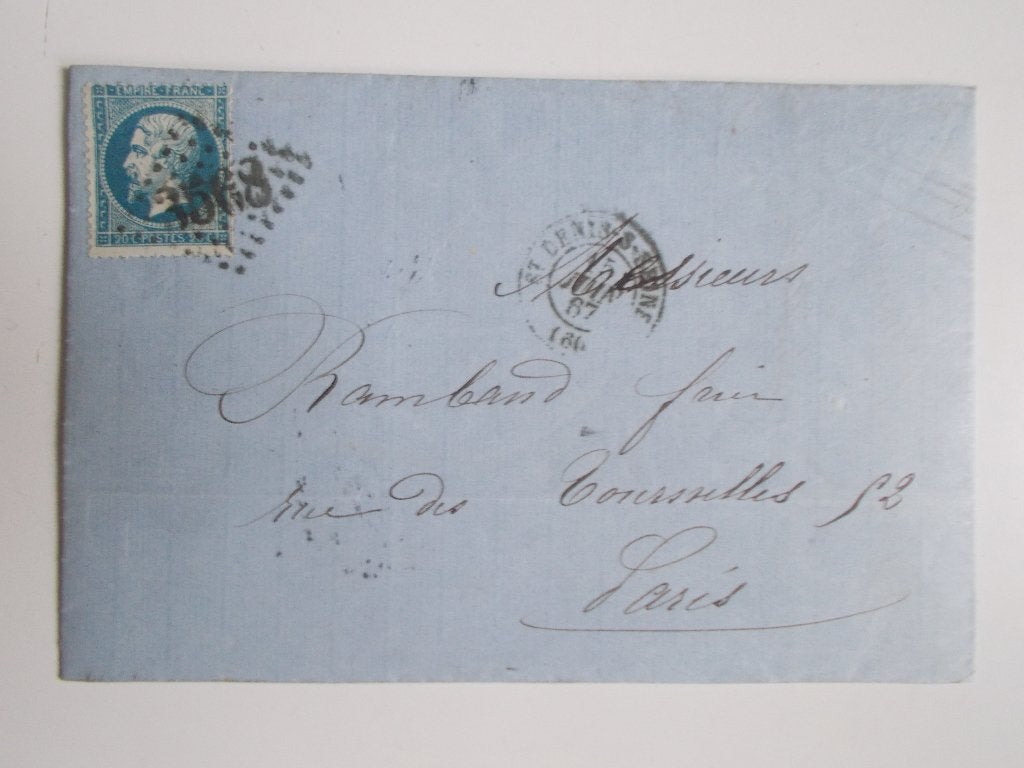 EMPIRE FRANC
20 C. POSTES 20 C.
3568
ST DENIS-S-SEINE
67
(60)
Messieurs
Rambaud frères
rue des Tournelles 52
Paris